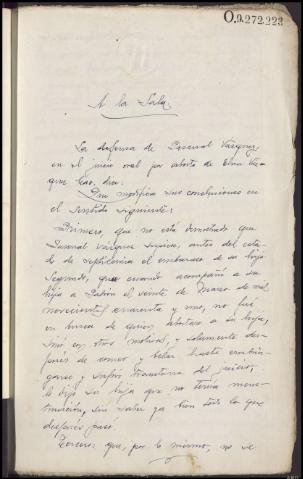 O.9.272.223
A la Sala,
La defensa de Pascual Vázquez
en el juicio oral por aborto de
que dice:
Que modifica sus conclusiones en
el sentido siguiente:
Primero, que no está demostrado que
Pascual Vázquez antes del
de el embarazo de su hija
Segundo, que cuando acompañó a su
hija a Padrón el veinte de Marzo de mil
novecientos cuarenta y uno, no fué
en busca de quien abortase a su hija,
sino con otros motivos, y solamente des-
pués de comer y beber hasta embria-
garse y sufrir trastorno del juicio,
le dijo su hija que no tenía mens-
truación, sin saber ya bien todo lo que
después pasó.
Tercero: que, por lo mismo, no se